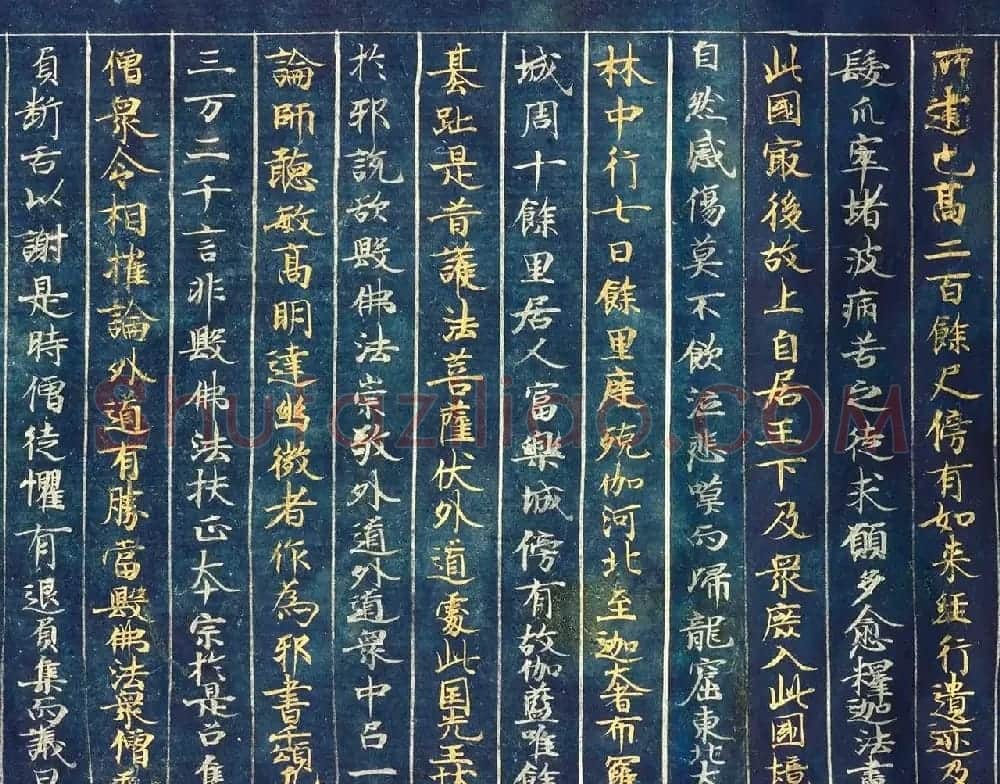 所建也高二百餘尺傍有如来經行遺迹及
髮爪窣堵波病苦之徒求願多愈釋迦法盡
此國寂後故上自居王下及衆庶入此國境
自然感傷莫不飲泣悲嘆而歸龍窟東北大
林中行七日餘里度殑伽河北至迦奢布羅
城周十餘里居人富樂城傍有故伽藍唯餘
基趾是昔護法菩薩伏外道處此国先王
於邪説欲毀佛法崇敬外道外道衆中召一
論師聰敏高明達幽微者作為邪書千頌
三万二千言非毀佛法扶正本宗於是召集
僧衆令相摧論外道有勝當毀佛法衆僧
負斷舌以謝是時僧徒懼有退負集而議曰
Shufaziliao.COM